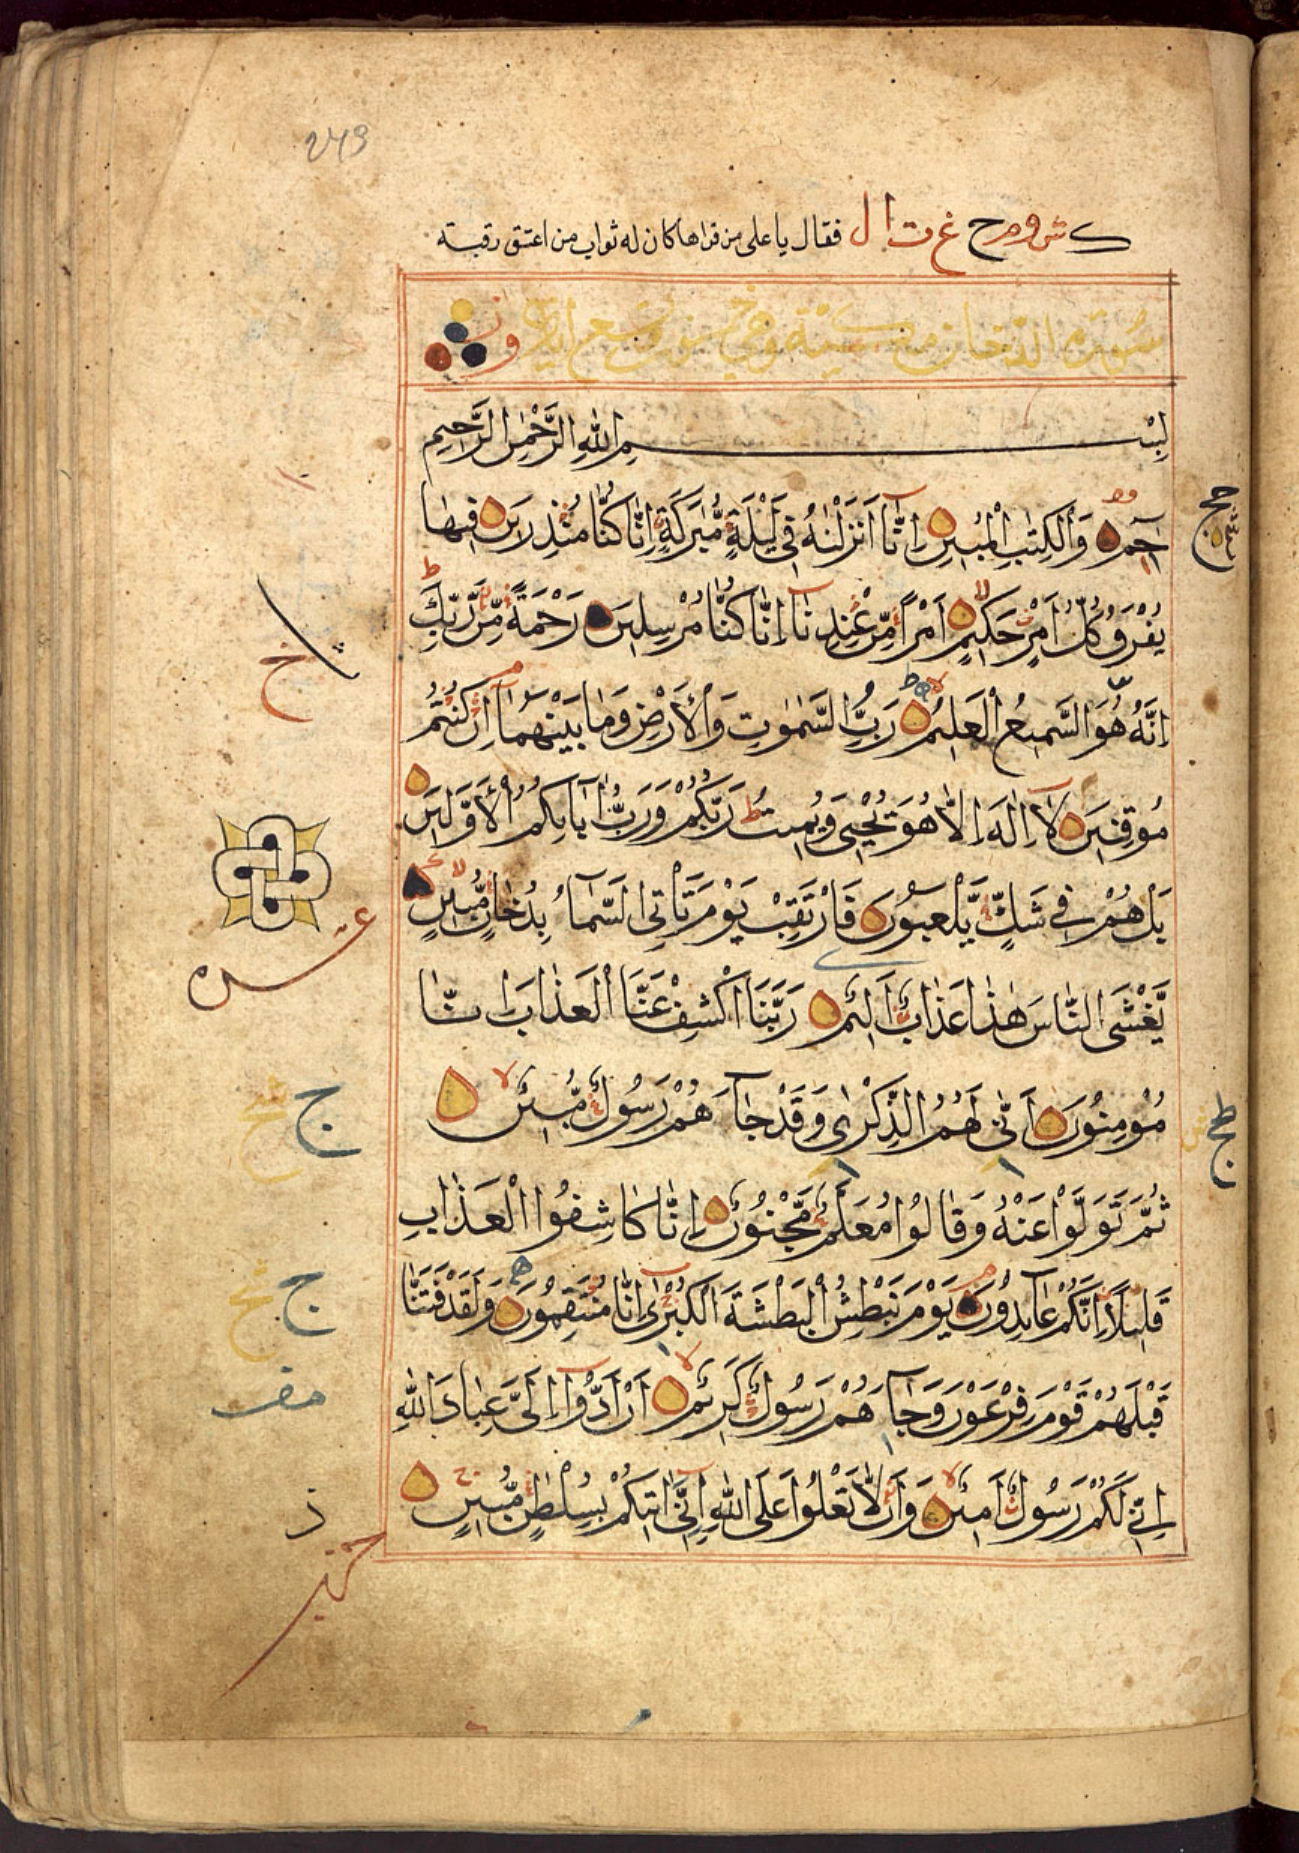 249
ك ش و م ح غ ت ا ل فقال يا على من قراها كان له ثواب من اعتق رقبته
سورة الدخان مكية وهي خمسون وتسع ايات
بِسْمِ اللهِ الرَّحْمٰنِ الرَّحِيمِ
حٰمٓ وَالْكِتٰبِ الْمُبِينِ اِنَّا اَنْزَلْنٰهُ فِي لَيْلَةٍ مُّبٰرَكَةٍ اِنَّا كُنَّا مُنْذِرِينَ فِيهَا
يُفْرَقُ كُلُّ اَمْرٍ حَكِيمٍ اَمْرًا مِّنْ عِنْدِنَا اِنَّا كُنَّا مُرْسِلِينَ رَحْمَةً مِّنْ رَّبِّكَ
اِنَّهُ هُوَ السَّمِيعُ الْعَلِيمُ رَبِّ السَّمٰوٰتِ وَالْاَرْضِ وَمَا بَيْنَهُمَا اِنْ كُنْتُمْ
مُوقِنِينَ لَا اِلٰهَ اِلَّا هُوَ يُحْيِي وَيُمِيتُ رَبُّكُمْ وَرَبُّ اٰبَائِكُمُ الْاَوَّلِينَ
بَلْ هُمْ فِي شَكٍّ يَّلْعَبُونَ فَارْتَقِبْ يَوْمَ تَاْتِي السَّمَاءُ بِدُخَانٍ مُّبِينٍ
يَّغْشَى النَّاسَ هٰذَا عَذَابٌ اَلِيمٌ رَبَّنَا اكْشِفْ عَنَّا الْعَذَابَ اِنَّا
مُؤْمِنُونَ اَنّٰى لَهُمُ الذِّكْرٰى وَقَدْ جَاءَهُمْ رَسُولٌ مُّبِينٌ
ثُمَّ تَوَلَّوْا عَنْهُ وَقَالُوا مُعَلَّمٌ مَّجْنُونٌ اِنَّا كَاشِفُوا الْعَذَابِ
قَلِيلًا اِنَّكُمْ عَائِدُونَ يَوْمَ نَبْطِشُ الْبَطْشَةَ الْكُبْرٰى اِنَّا مُنْتَقِمُونَ وَلَقَدْ فَتَنَّا
قَبْلَهُمْ قَوْمَ فِرْعَوْنَ وَجَاءَهُمْ رَسُولٌ كَرِيمٌ اَنْ اَدُّوا اِلَيَّ عِبَادَ اللهِ
اِنِّي لَكُمْ رَسُولٌ اَمِينٌ وَاَنْ لَّا تَعْلُوا عَلَى اللهِ اِنِّي اٰتِيكُمْ بِسُلْطٰنٍ مُّبِينٍ